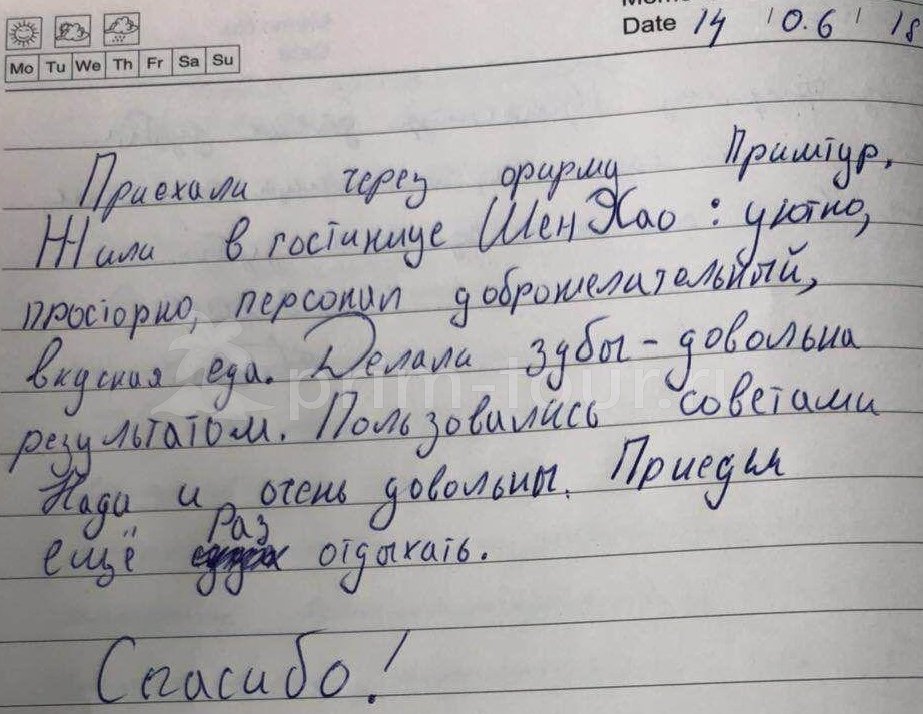 Date 14 / 0.6 / 18
Mo Tu We Th Fr Sa Su
Приехали через фирму Примтур,
Жили в гостинице ШенХао: уютно,
просторно, персонал доброжелательный,
вкусная еда. Делала зубы - довольна
результатом. Пользовались советами
Нади и очень довольны. Приедем
ещё раз отдыхать.
Спасибо!
prim-tour.ru